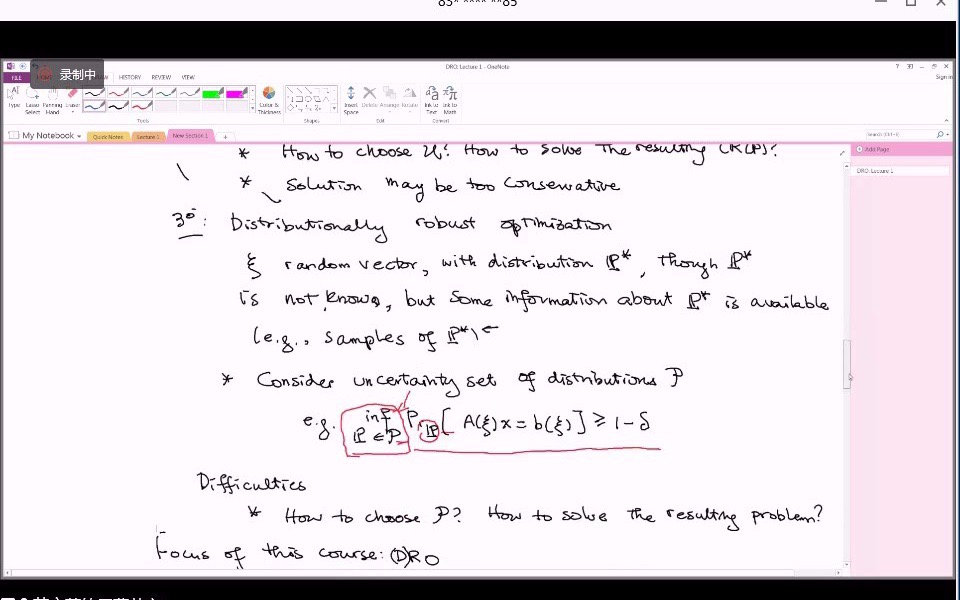 83* **** **85
DRO: Lecture 1 - OneNote
Sign in
录制中
FILE HISTORY REVIEW VIEW
Type Lasso Select Panning Hand Eraser Color & Thickness Insert Space Delete Arrange Rotate Ink to Text Ink to Math
Tools Shapes Edit Convert
My Notebook Quick Notes Lecture 1 New Section 1 + Search (Ctrl+E)
Add Page
DRO: Lecture 1
* How to choose U? How to solve the resulting (R(P)?
* Solution may be too conservative
3°: Distributionally robust optimization
ξ random vector, with distribution ℙ*, though ℙ*
is not known, but some information about ℙ* is available
(e.g., samples of ℙ*)
* Consider uncertainty set of distributions 𝒫
e.g. inf ℙ∈𝒫 P_ℙ[A(ξ)x = b(ξ)] ≥ 1-δ
Difficulties
* How to choose 𝒫? How to solve the resulting problem?
Focus of this course: (D)RO